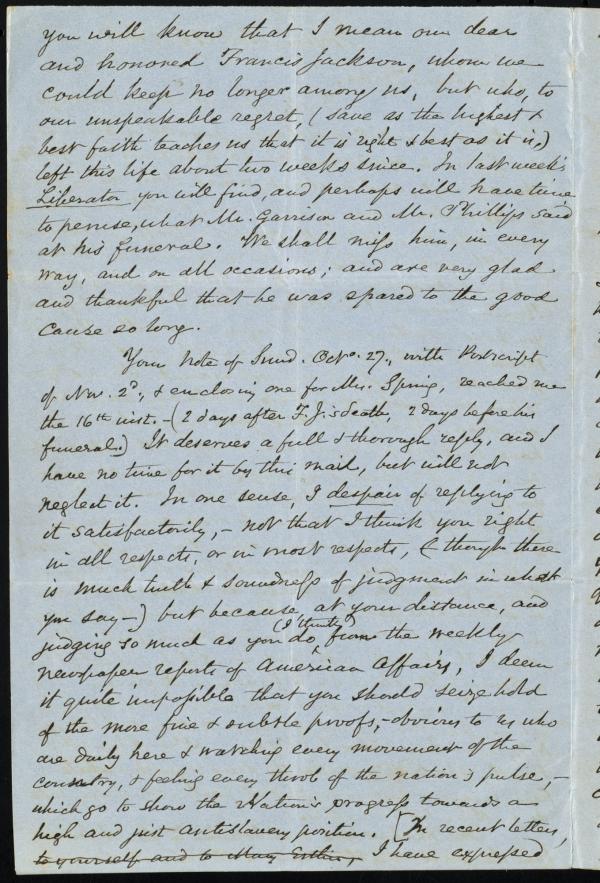 you will know that I mean our dear
and honored Francis Jackson, whom we
could keep no longer among us, but who, to
our unspeakable regret, (save as the highest &
best faith teaches us that it is right & best as it is,)
left this life about two weeks since. In last week's
Liberator you will find, and perhaps will have time
to peruse, what Mr. Garrison and Mr. Phillips said
at his funeral. We shall miss him, in every
way, and on all occasions; and are very glad
and thankful that he was spared to the good
cause so long.
Your Note of Sund. Octo. 27., with Postscript
of Nov. 2d., & enclosing one for Mrs. Spring, reached me
the 16th inst. - (2 days after F.J.'s death, 2 days before his
funeral.) It deserves a full & thorough reply, and I
have no time for it by this mail, but will not
neglect it. In one sense, I despair of replying to
it satisfactorily, - not that I think you right
in all respects, or in most respects, (though there
is much truth & soundness of judgment in what
you say -) but because, at your distance, and
judging so much as you do, (I think) from the weekly
newspaper reports of American Affairs, I deem
it quite impossible that you should seize hold
of the more fine & subtle proofs, - obvious to us who
are daily here & watching every movement of the
country, & feeling every throb of the nation's pulse, -
which go to show the Nation's progress towards a
high and just antislavery position. [In recent letters,
to yourself and to Mary Estlin, I have expressed